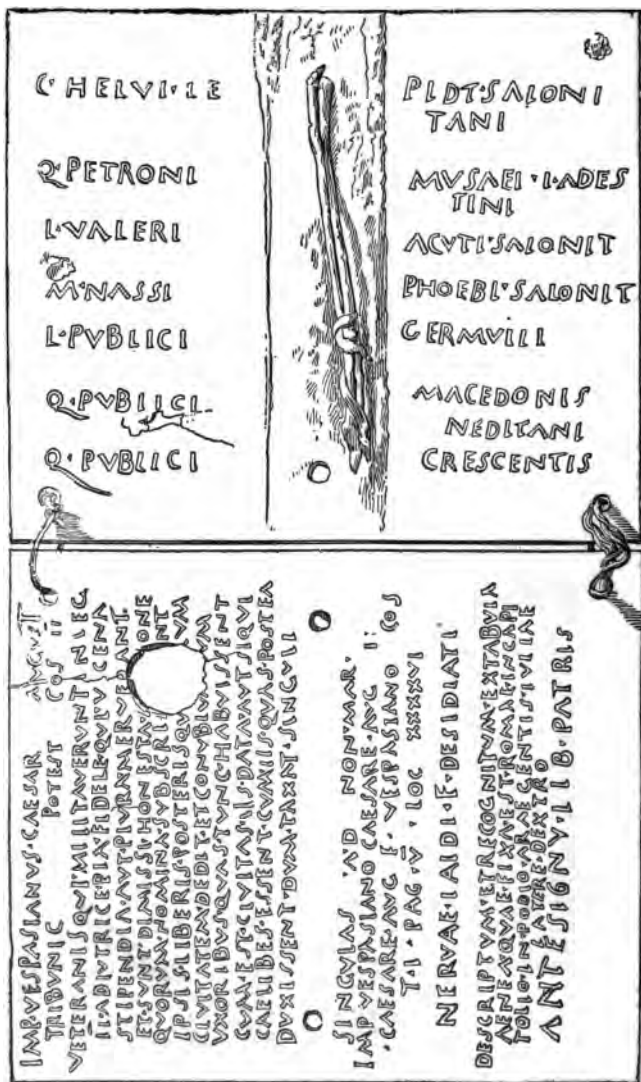 C·HELVI·LE
Q·PETRONI
L·VALERI
M·NASSI
L·PVBLICI
Q·PVBLICI
Q·PVBLICI
PIDT·SALONI
TANI
MVSAEI·I·ADES
TINI
ACVTI·SALONIT
PHOEBI·SALONIT
GERMVILI
MACEDONIS
NEDITANI
CRESCENTIS
IMP·VESPASIANVS·CAESAR AVGVST
TRIBVNIC POTEST COS II
VETERANIS QVI·MILITAVERVNT IN LEG
II·ADIVTRICE·PIA·FIDELE·QVI V CENA
STIPENDIA·AVT·PLVRA MERVERANT
ET·SVNT·DIMISSI·HONESTA IONE
QVORVM·NOMINA·SVBSCRI NT
IPSIS·LIBERIS·POSTERISQV VM
CIVITATEM DEDIT·ET CONVBIV M
VXORIBVS QVAS TVNC HABVISSENT
CVM·EST·CIVITAS·IIS·DATA·AVT SIQVI
CAELIBES·ESSENT·CVM IIS·QVAS·POSTEA
DVXISSENT·DVM·TAXAT·SINGVLI
SINGVLAS A D NON·MAR·
IMP·VESPASIANO CAESARE·AVG I
CAESARE·AVG F·VESPASIANO COS
T·I·PAG·V·LOC XXXXXVI
NERVAE·LAIDI·F·DESIDIATI
DESCRIPTVM·ET RECOGNITVM·EX TABVLA
AENEA QVAE·FIXA EST·ROMAE·IN CAPI
TOLIO·IN·PODIO·ARAE GENTIS·IVLIAE
LATERE·DEXTRO
ANTE SIGNV·LIB·PATRIS